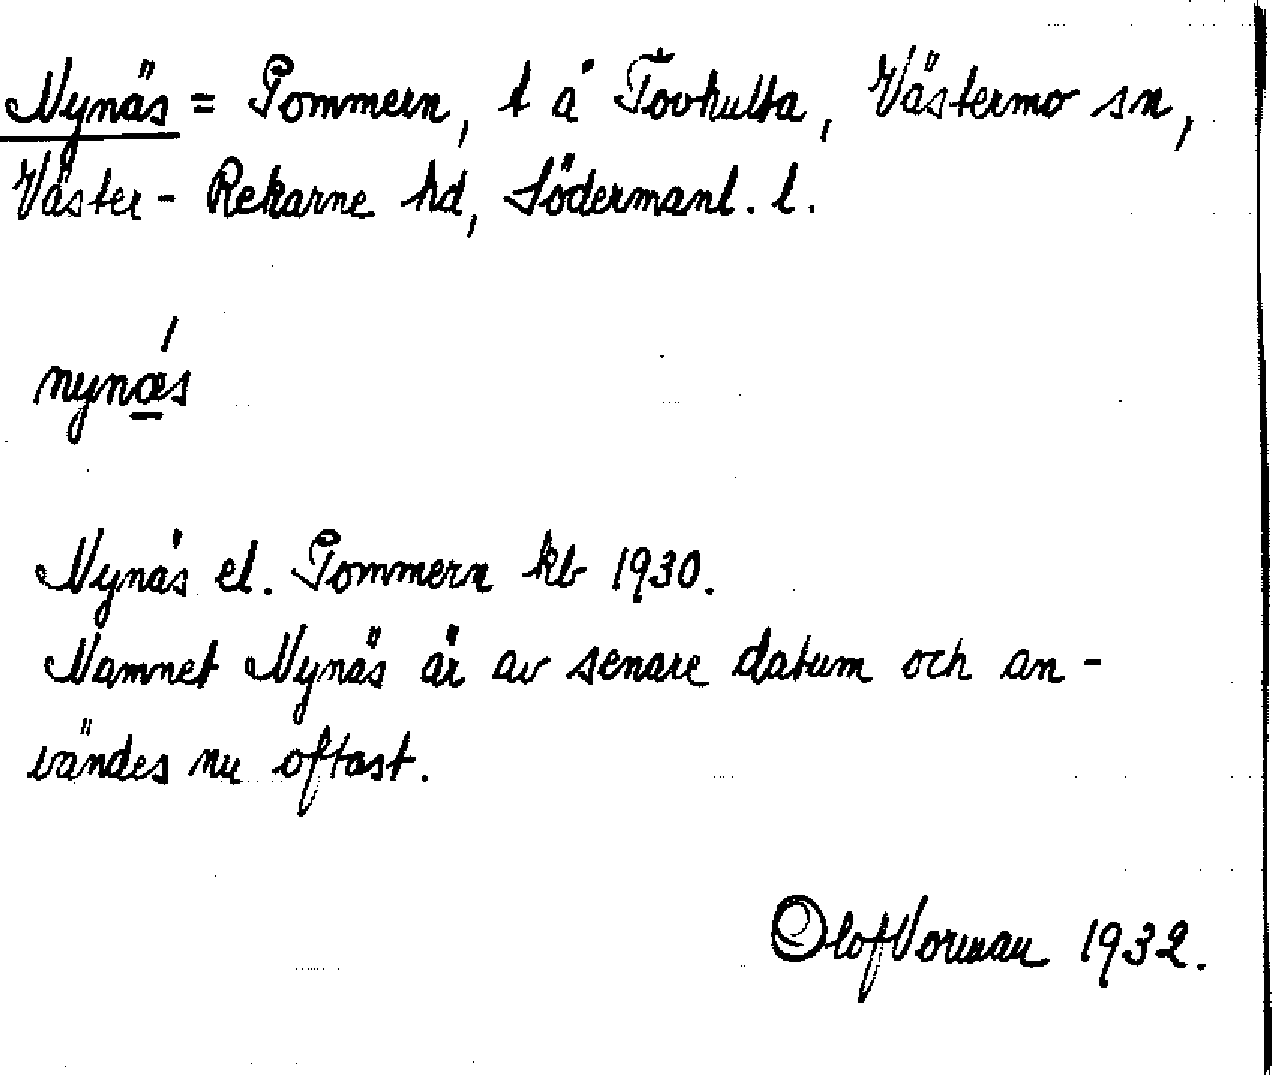 Nynäs = Pommern, t å Tovhulta, Västermo sn,
Väster - Rekarne hd, Södermanl. l.
nynǽ̲s
Nynäs el. Pommern kb 1930.
Namnet Nynäs är av senare datum och an-
vändes nu oftast.
Olof Vorman 1932.